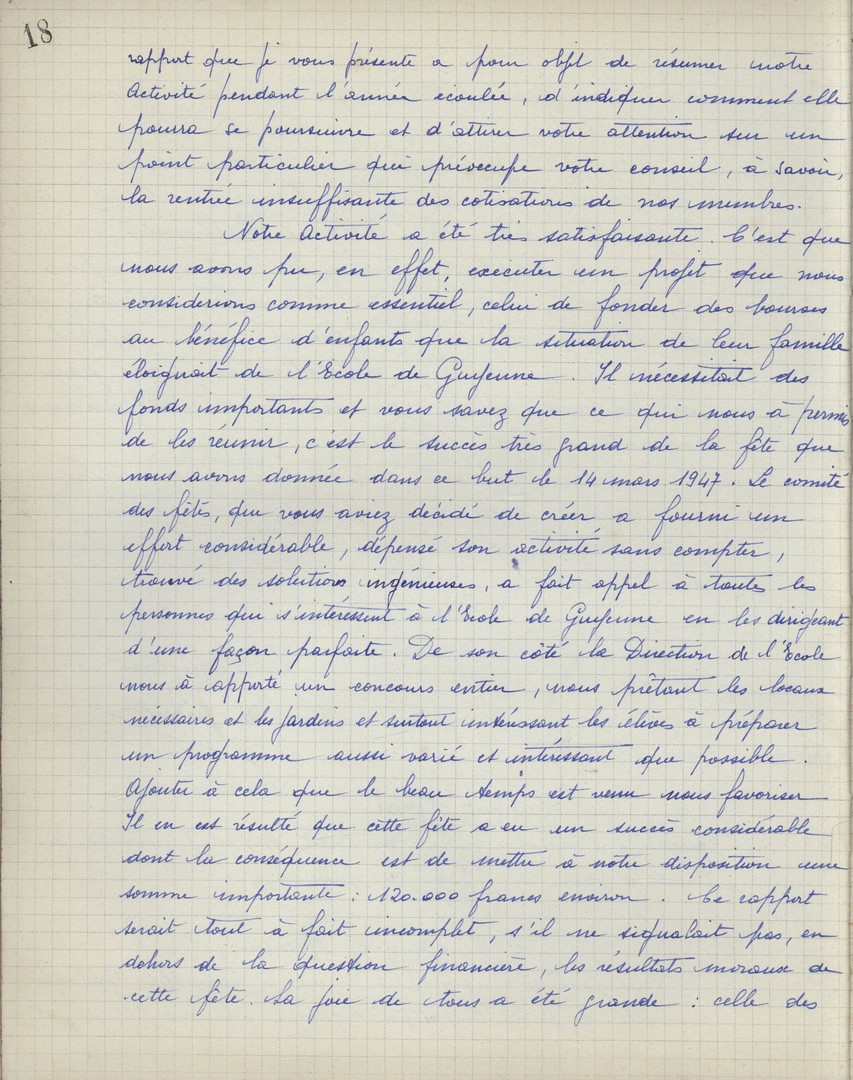 18
rapport que je vous présente a pour objet de résumer notre
Activité pendant l'année écoulée, d'indiquer comment elle
pourra se poursuivre et d'attirer votre attention sur un
point particulier qui préoccupe votre conseil, à savoir,
la rentrée insuffisante des cotisations de nos membres.
Notre Activité a été très satisfaisante. C'est que
nous avons pu, en effet, exécuter un projet que nous
considerions comme essentiel, celui de fonder des bourses
au bénéfice d'enfants que la situation de leur famille
éloignait de l'Ecole de Guyenne. Il nécessitait des
fonds importants et vous savez que ce qui nous à permis
de les réunir, c'est le succès très grand de la fête que
nous avons donnée dans ce but le 14 mars 1947. Le comité
des fêtes, que vous aviez décidé de créer a fourni un
effort considérable, dépensé son activité sans compter,
trouvé des solutions ingénieuses, a fait appel à toutes les
personnes qui s'intéressent à l'Ecole de Guyenne en les dirigeant
d'une façon parfaite. De son côté la Direction de l'Ecole
nous à apporté un concours entier, nous prêtant les locaux
nécessaires et les jardins et surtout intéressant les élèves à préparer
un programme aussi varié et intéressant que possible.
Ajouter à cela que le beau temps est venu nous favoriser
Il en est résulté que cette fête a eu un succès considérable
dont la conséquence est de mettre à notre disposition une
somme importante : 120.000 francs environ. Ce rapport
serait tout à fait incomplet, s'il ne signalait pas, en
dehors de la question financière, les résultats moraux de
cette fête. La joie de tous a été grande : celle des